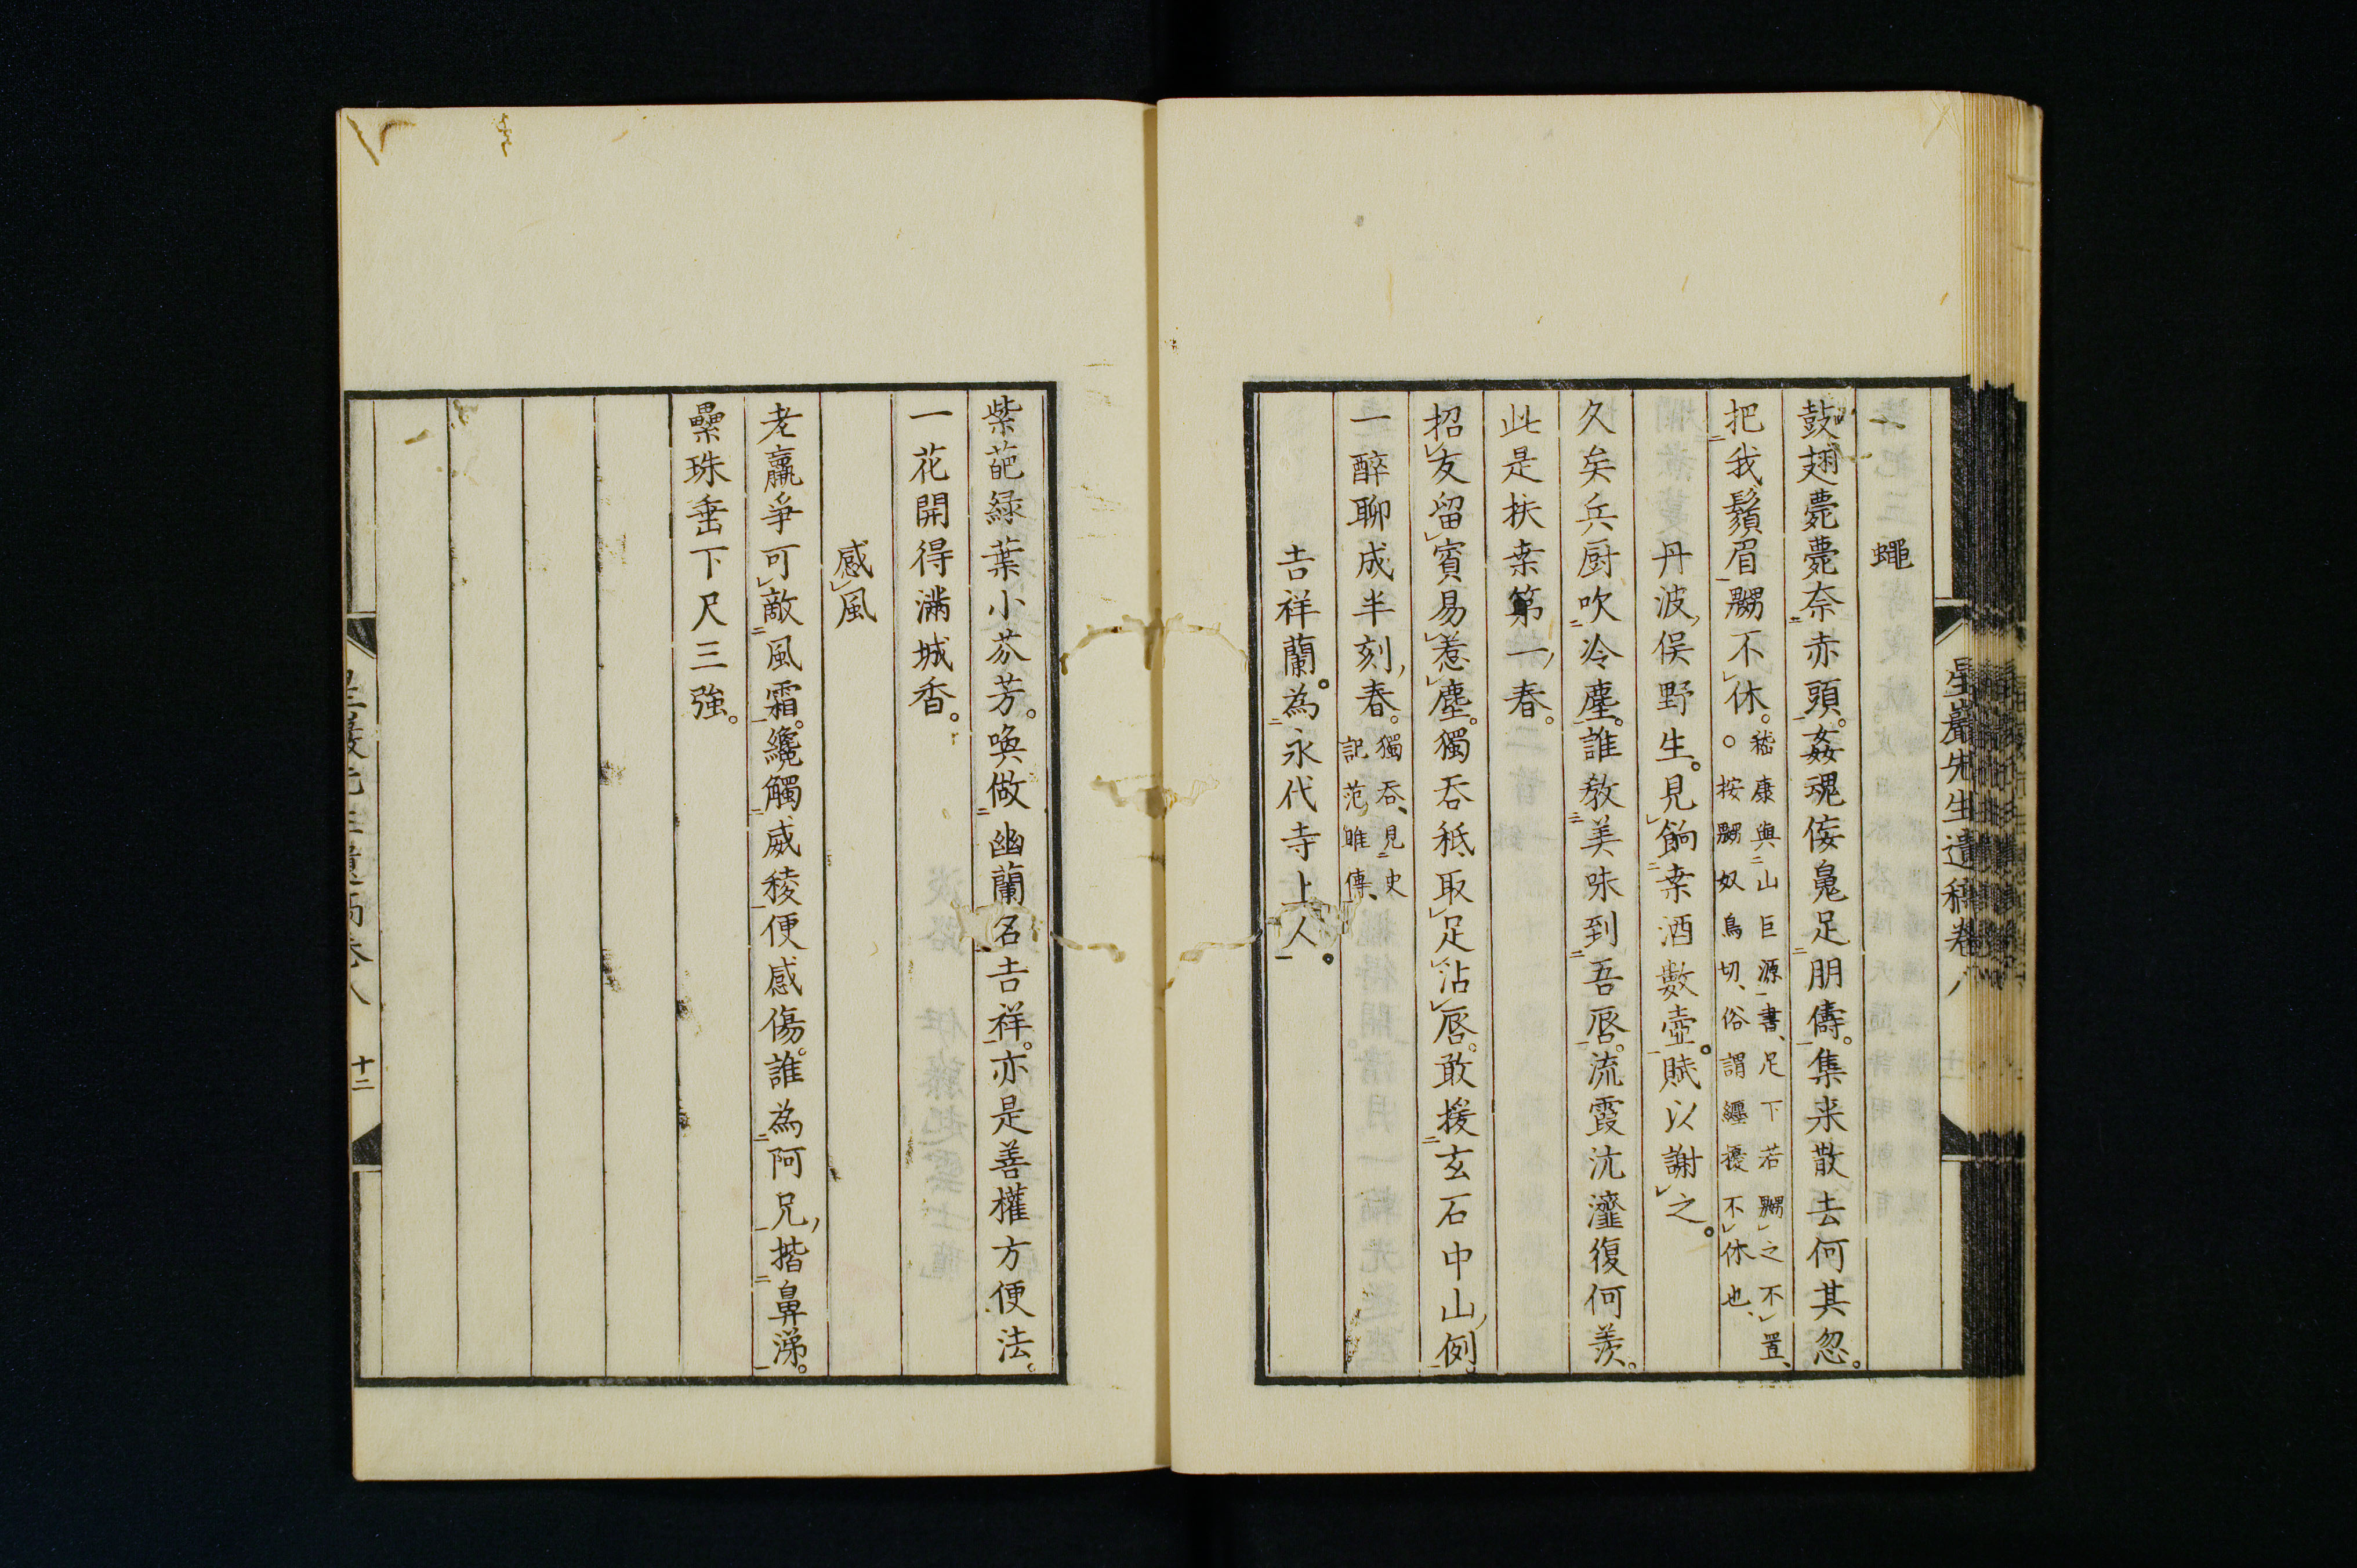 星巖先生遺稿卷八
蠅
鼓翅薨薨奈赤頭。姦魂侫鬼足朋儔。集来散去何其忽。
把我鬚眉嬲不休。嵆康與山巨源書、足下若嬲之不置、
○按嬲奴鳥切、俗謂纒擾不休也、
丹波俣野生。見餉桒酒數壺。賦以謝之。
久矣兵厨吹冷塵。誰教美味到吾唇。流霞沆瀣復何羨。
此是扶桒第一春。
招友留賓易惹塵。獨吞秪取足沾唇。敢援玄石中山例。
一醉聊成半刻春。獨吞、見史
記范雎傳、
吉祥蘭。為永代寺上人。
紫葩緑葉小芬芳。喚做幽蘭名吉祥。亦是善權方便法。
一花開得滿城香。
感風
老羸爭可敵風霜。纔觸威稜便感傷。誰為阿兄揩鼻涕。
纍珠垂下尺三強。
十二